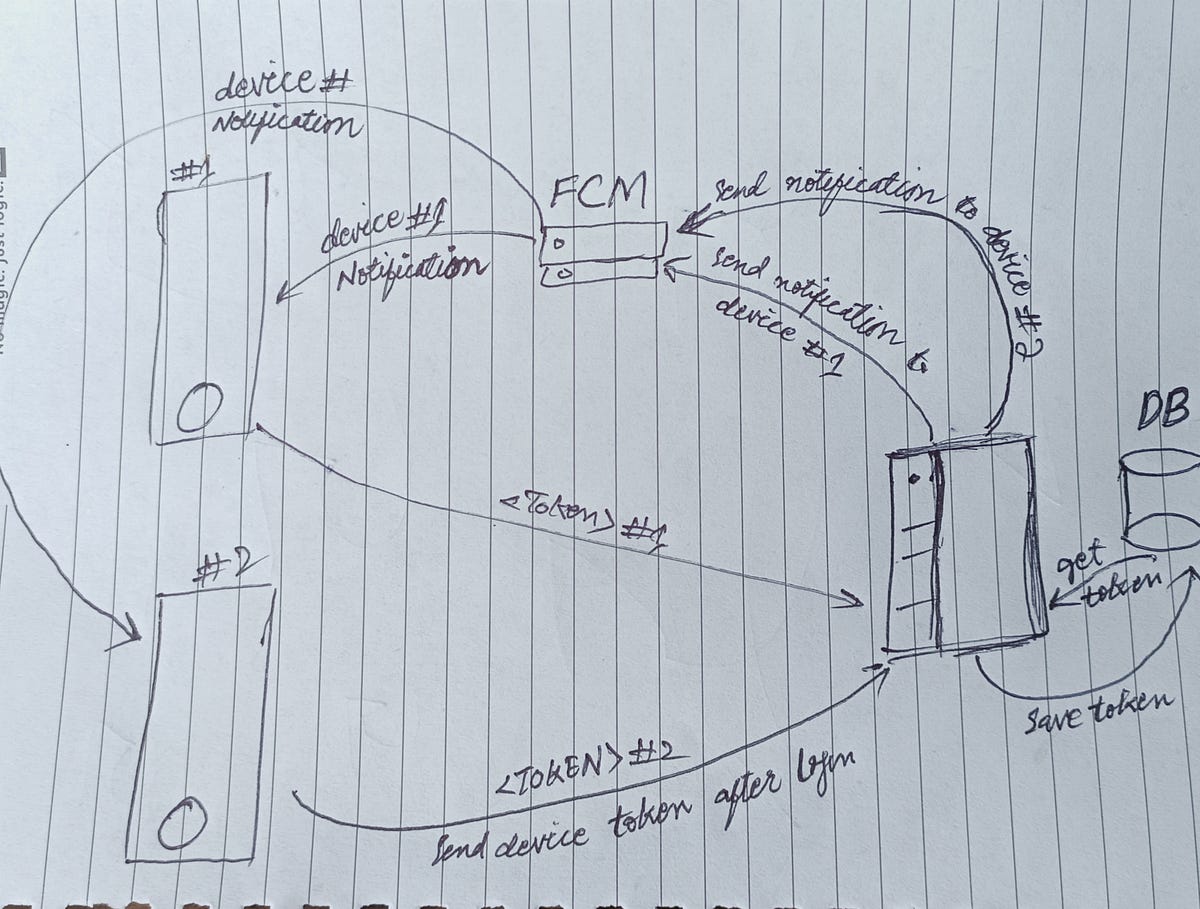 device #
Notification
#1
FCM
send notification to device #2
device #1
Notification
send notification to
device #1
magic. Just logic.
DB
<Token> #1
get
token
#2
save token
<TOKEN> #2
Send device token after login